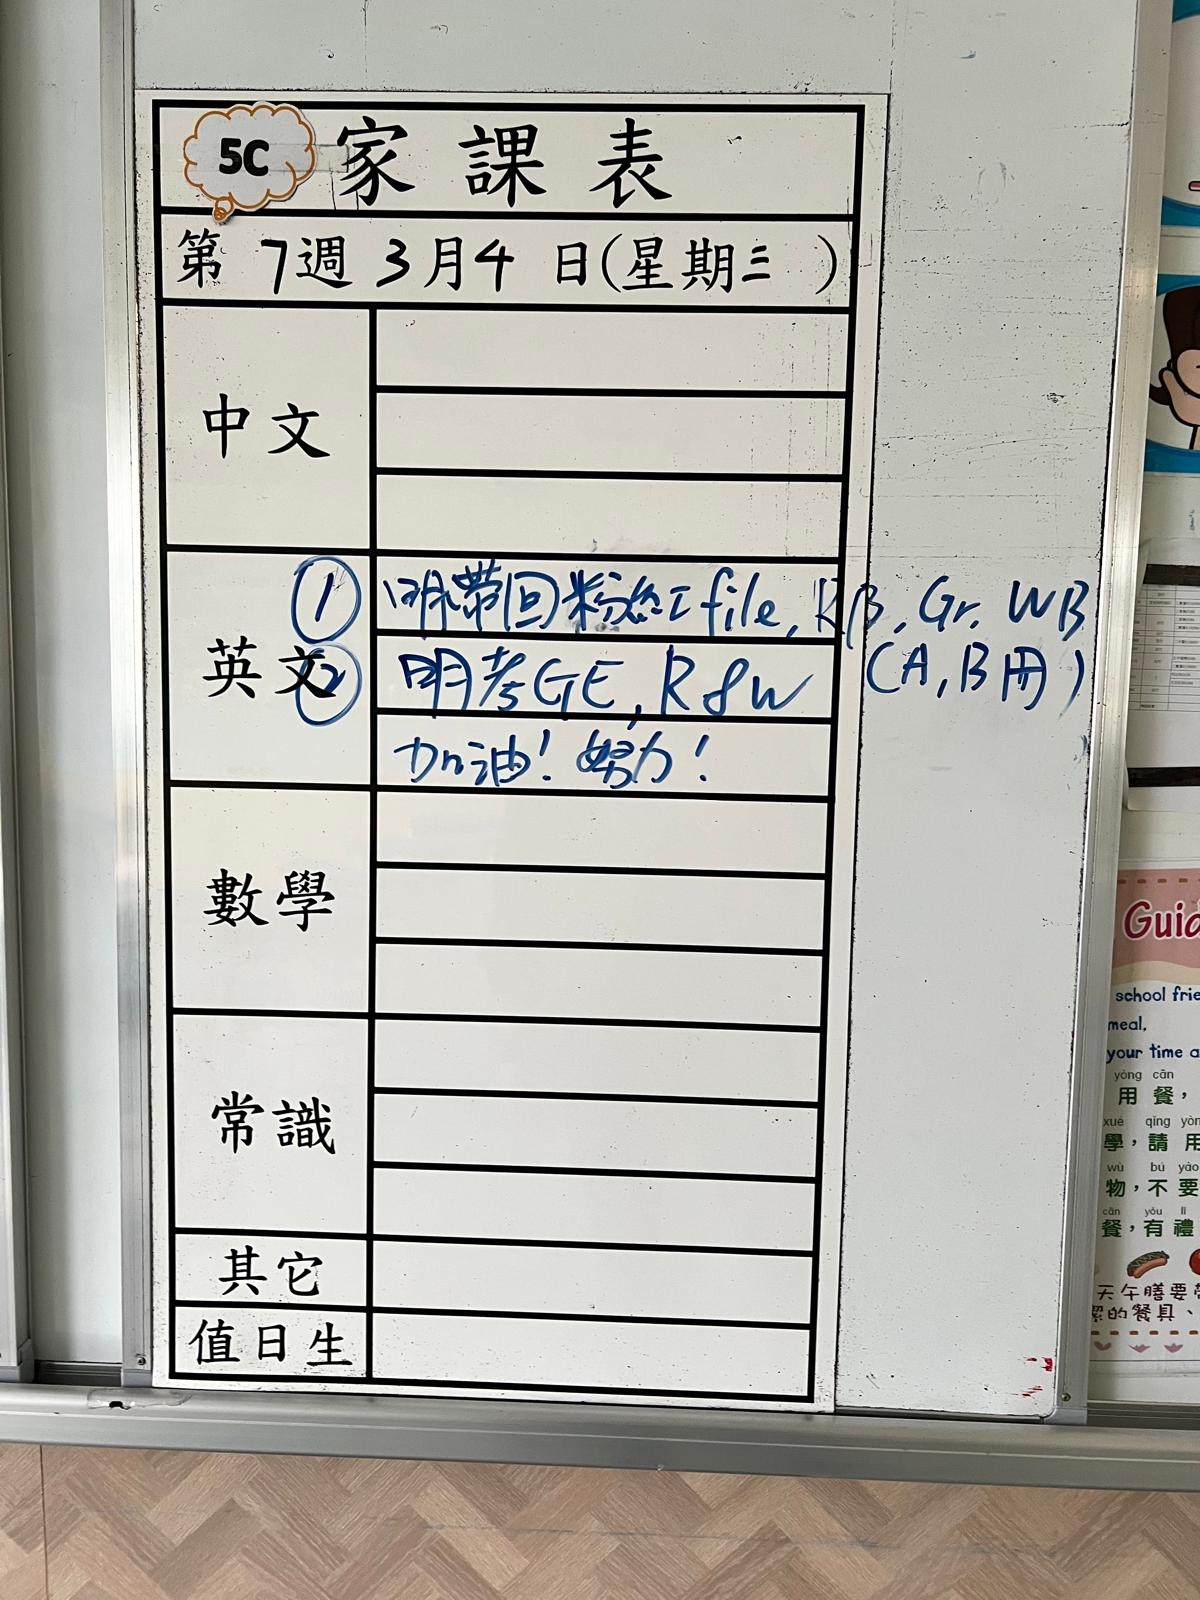 5C 家課表
第 7週 3月4 日(星期三 )
中文
英文
① 明帶回粉紅file, RB, Gr. WB
(A, B冊)
② 明考GE, R&W
加油! 努力!
數學
常識
其它
值日生
Guid
school frie
meal,
your time a
yòng cān
用餐，
xué qǐng yòn
學，請用
wù bú yào
物，不要
cān yǒu lǐ
餐，有禮
天午膳要帶
潔的餐具、